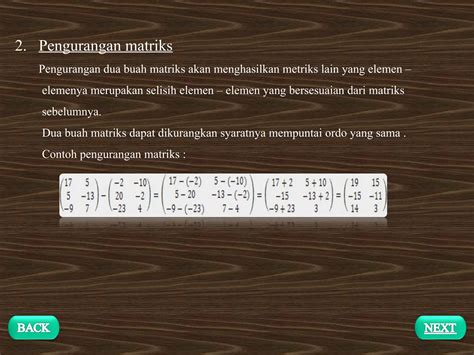 2. Pengurangan matriks
Pengurangan dua buah matriks akan menghasilkan metriks lain yang elemen –
elemenya merupakan selisih elemen – elemen yang bersesuaian dari matriks
sebelumnya.
Dua buah matriks dapat dikurangkan syaratnya mempuntai ordo yang sama .
Contoh pengurangan matriks :
(17 5) − (−2 −10) = (17 − (−2) 5 − (−10)) = (17 + 2 5 + 10) = (19 15)
(5 −13) (20 −2) (5 − 20 −13 − (−2)) (−15 −13 + 2) (−15 −11)
(−9 7) (−23 4) (−9 − (−23) 7 − 4) (−9 + 23 3) (14 3)
BACK NEXT